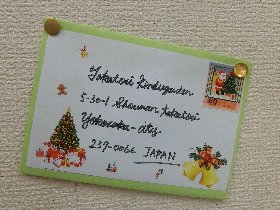 Takatori Kindergarden
5-30-1 Shounan-takatori
Yokosuka-city
237-0066 JAPAN